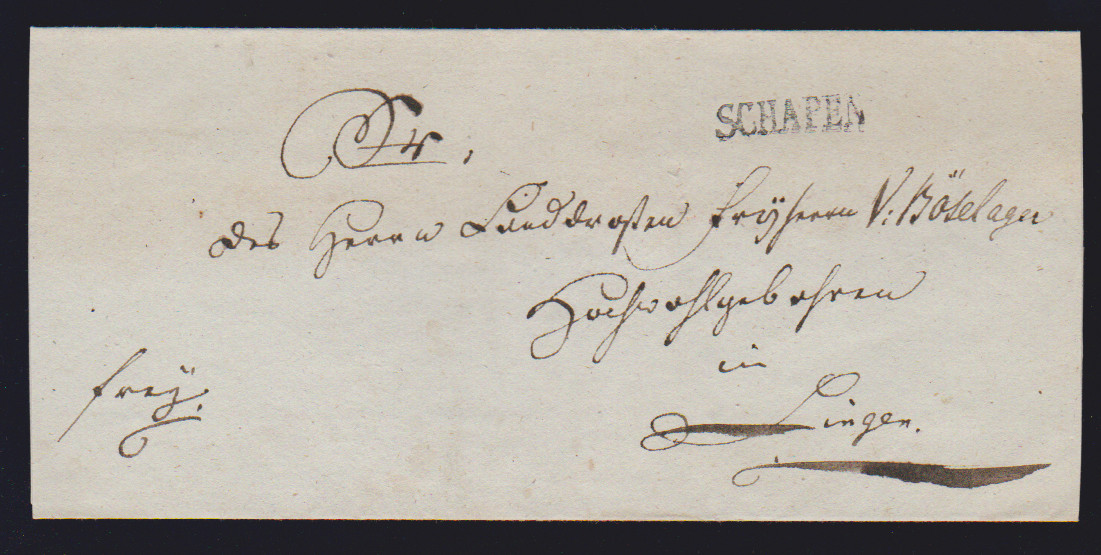 SCHAPEN
Sr.
des Herrn Landdrosten Fryherrn V: Böselager
Hochwohlgebohren
in
Lingen.
frey.